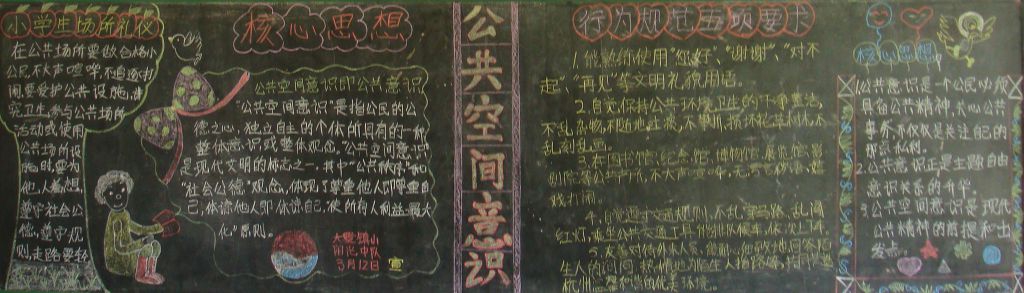 小学生场所礼仪
在公共场所要做合格小
公民,不大声喧哗,不追逐打
闹要爱护公共设施,讲
究卫生,参与公共场所
活动或使用
公共场所设
施时要为
他人着想
遵守社会公
德,遵守规
则走路要轻
核心思想
公共空间意识即"公共意识
"公共空间意识"是指公民的公
德之心,独立自主的个体所具有的一种
整体意识或整体观念。公共空间意识
是现代文明的标志之一,其中"公共秩序"和
"社会公德"观念,体现了尊重他人即尊重自
己,体谅他人即体谅自己,使所有人利益最大
化"原则。
3月12日
宣
公共空间意识
行为规范五项要求
1.能熟练使用"您好"、"谢谢"、"对不
起"、"再见"等文明礼貌用语。
2.自觉保持公共环境卫生的干净整洁,
不乱扔物,不随地吐痰,不攀折
乱刻乱画。
3.在图书馆、纪念馆、博物馆、展览馆、影
剧院等公共场所,不大声喧哗,
戏打闹。
4.自觉遵守交通规则,不乱穿马路、乱闯
红灯,乘坐公共交通工具时排队候车,依次上车
5.友善对待外来人,
生人的问询,热情地为陌生人指路
杭州
核心思想
1公共意识是一个公民必须
具备公共精神,关心公共
事务,不仅仅是关注自己的
2.公共意识正是主张自由
意识关系的升华。
3.公共空间意识是现代
公共精神的前提和出
发点